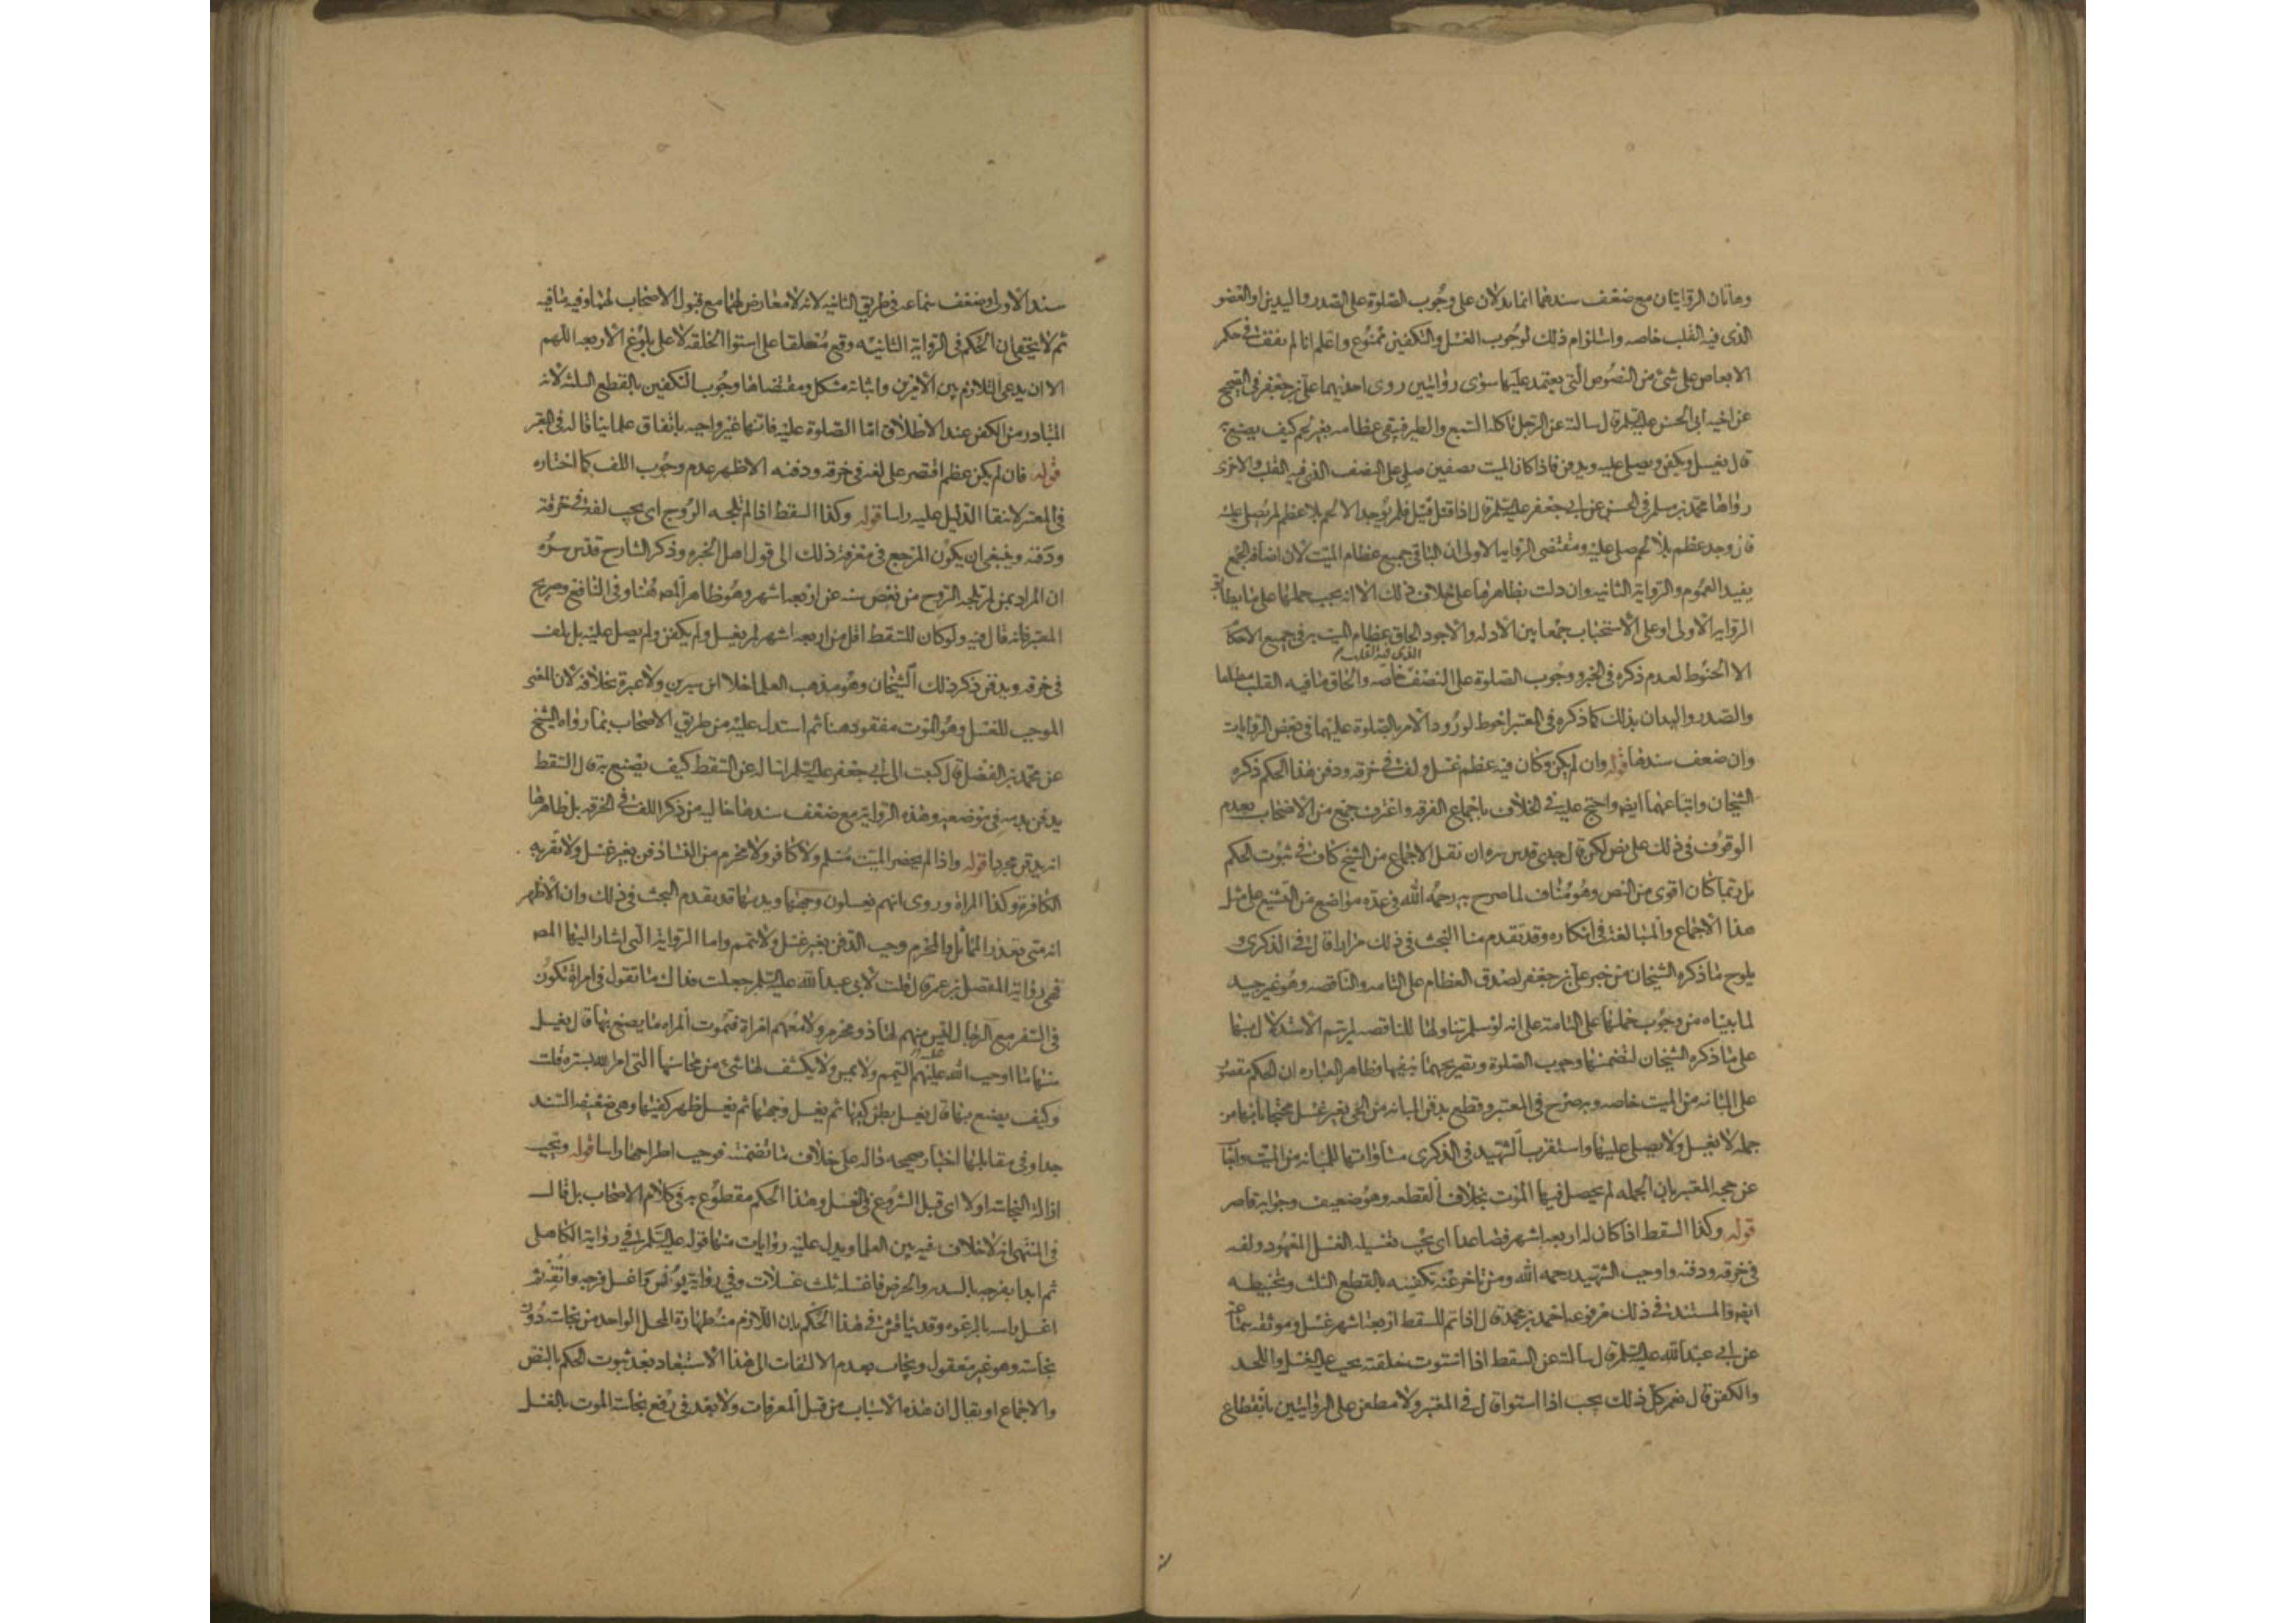 وهاتان الروايتان مع ضعف سندهما انما يدلان على وجوب الصلوة على الصدر واليدين او العضو
الذى فيه القلب خاصه واستلزام ذلك لوجوب الغسل والتكفين ممنوع واعلم انا لم نقف فى حكم
الابعاض على شئ من النصوص التى يعتمد عليها سوى روايتين روى احديهما على بن جعفر فى الصحيح
عن اخيه ابى الحسن عليه السلم قال سالته عن الرجل ياكله السبع والطير فيبقى عظامه بغير لحم كيف يصنع به
قال يغسل ويكفن ويصلى عليه ويدفن فاذا كان الميت نصفين صلى على النصف الذى فيه القلب والاخرى
رواها محمد بن مسلم فى الحسن عن ابى جعفر عليه السلم قال اذا قتل قتيل فلم يوجد الا لحم بلا عظم لم يصل عليه
فان وجد عظم بلا لحم صلى عليه ومقتضى الروايه الاولى ان الباقى جميع عظام الميت لان اضافه الجمع
يفيد العموم والرواية الثانيه وان دلت بظاهرها على خلاف ذلك الا انه يجب حملها على ما يطابق
الروايه الاولى او على الاستحباب جمعا بين الادله والاجود الحاق عظام الميت به فى جميع الاحكا
الذى فيه القلب
الا الحنوط لعدم ذكره فى الخبر ووجوب الصلوة على النصف خاصه والحاق ما فيه القلب مطلقا
والصدر واليدان بذلك كما ذكره فى المعتبر احوط لورود الامر بالصلوة عليهما فى بعض الروايات
وان ضعف سندها قوله وان لم يكن وكان فيه عظم غسل ولف فى خرقه ودفن هذا الحكم ذكره
الشيخان واتباعهما ايضا واحتج عليه فى الخلاف باجماع الفرقه واعترف جمع من الاصحاب بعدم
الوقوف فى ذلك على نص لكن قال جدى قدس سره ان نقل الاجماع من الشيخ كاف فى ثبوت الحكم
بل ربما كان اقوى من النص وهو مناف لما صرح به رحمه الله فى عدة مواضع من التشنيع على مثل
هذا الاجماع والمبالغة فى انكاره وقد تقدم منا البحث فى ذلك مرارا قال فى الذكرى و
يلوح ما ذكره الشيخان من خبر على بن جعفر لصدق العظام على التامه والناقصه وهو غير جيد
لما بيناه من وجوب حملها على التامة على انه لو سلم تناولها للناقصه لم يتم الاستدلال بها
على ما ذكره الشيخان لتضمنها وجوب الصلوة وتصريحهما بنفيها وظاهر العباره ان الحكم مقصور
على المبانه من الميت خاصه وبه صرح فى المعتبر وقطع بدفن المبانه من الحى بغير غسل محتجا بانها من
جمله لا يغسل ولا يصلى عليها واستقرب الشهيد فى الذكرى مساواتها للمبانه من الميت واجاب
عن حجه المعتبر بان الجمله لم يحصل فيها الموت بخلاف القطعه وهو ضعيف وجوابه قاصر
قوله وكذا السقط اذا كان له اربعه اشهر فصاعدا اى يجب تغسيله الغسل المعهود ولفه
فى خرقه ودفنه واوجب الشهيد رحمه الله ومن تاخر عنه تكفينه بالقطع الثلث وتحنيطه
ايضا والمستند فى ذلك مرفوعه احمد بن محمد قال اذا تم للسقط اربعه اشهر غسل وموثقه سماعه
عن ابى عبد الله عليه السلم قال سالته عن السقط اذا استوت خلقته يجب عليه الغسل واللحد
والكفن قال نعم كل ذلك يجب اذا استوا قال فى المعتبر ولا مطعن على الروايتين بانقطاع
سند الاولى وضعف سماعه فى طريق الثانيه لانه لا معارض لهما مع قبول الاصحاب لهما وفيه ما فيه
ثم لا يخفى ان الحكم فى الرواية الثانيه وقع معلقا على استوا الخلقه لا على بلوغ الاربعه اللهم
الا ان يدعى التلازم بين الامرين واثباته مشكل ومقتضاها وجوب التكفين بالقطع الثلثه لانه
المتبادر من الكفن عند الاطلاق اما الصلوة عليه فانها غير واجبه باتفاق علمائنا قاله فى المعتبر
قوله فان لم يكن عظم اقتصر على لفه فى خرقه ودفنه الاظهر عدم وجوب اللف كما اختاره
فى المعتبر لانتفا الدليل عليه راسا قوله وكذا السقط اذا لم تلجه الروح اى يجب لفه فى خرقة
ودفنه وينبغى ان يكون المرجع فى معرفة ذلك الى قول اهل الخبره وذكر الشارح قدس سره
ان المراد بمن لم تلجه الروح من نقص سنه عن اربعه اشهر وهو ظاهر المصه هنا وفى النافع وصريح
المعتبر فانه قال فيه ولو كان للسقط اقل من اربعه اشهر لم يغسل ولم يكفن ولم يصل عليه بل يلف
فى خرقه ويدفن ذكر ذلك الشيخان وهو مذهب العلما خلا ابن سيرين ولا عبرة بخلافه لان المعنى
الموجب للغسل وهو الموت مفقود هنا ثم استدل عليه من طريق الاصحاب بما رواه الشيخ
عن محمد بن الفضل قال كتبت الى ابى جعفر عليه السلم اساله عن السقط كيف يصنع به قال السقط
يدفن بدمه فى موضعه وهذه الرواية مع ضعف سندها خاليه من ذكر اللف فى الخرقه بل ظاهرها
انه يدفن مجردا قوله واذا لم يحضر الميت مسلم ولا كافر ولا محرم من النسا دفن بغير غسل ولا تقربه
الكافرة وكذا المراة وروى انهم يغسلون وجهها ويديها قد تقدم البحث فى ذلك وان الاظهر
انه متى تعذر المماثل والمحرم وجب الدفن بغير غسل ولا تيمم واما الرواية التى اشار اليها المصه
فهى رواية المفضل بن عمر قال قلت لابى عبد الله عليه السلم جعلت فداك ما تقول فى امراة تكون
فى السفر مع الرجال ليس منهم لها ذو محرم ولا معهم امراة فتموت المراه ما يصنع بها قال يغسل
منها ما اوجب الله عليهم التيمم ولا يمس ولا يكشف لها شئ من محاسنها التى امر الله بستره قلت
وكيف يصنع بها قال يغسل بطن كفيها ثم يغسل وجهها ثم يغسل ظهر كفيها وهى ضعيفه السند
جدا وفى مقابلها اخبار صحيحه داله على خلاف ما تضمنته فوجب اطراحها راسا قوله وتجب
ازالة النجاسه اولا اى قبل الشروع فى الغسل وهذا الحكم مقطوع به فى كلام الاصحاب بل قال
فى المنتهى انه لا خلاف فيه بين العلما ويدل عليه روايات منها قوله عليه السلم فى رواية الكاهلى
ثم ابدا بفرجه بالسدر والحرض فاغسله ثلث غسلات وفى رواية يونس واغسل فرجه وانقه ثم
اغسل راسه بالرغوه وقد يناقش فى هذا الحكم بان اللازم منه طهارة المحل الواحد من نجاسه دون
نجاسه وهو غير معقول ويجاب بعدم الالتفات الى هذا الاستبعاد بعد ثبوت الحكم بالنص
والاجماع او يقال ان هذه الاسباب من قبل المعرفات ولا بعد فى رفع نجاسة الموت بالغسل